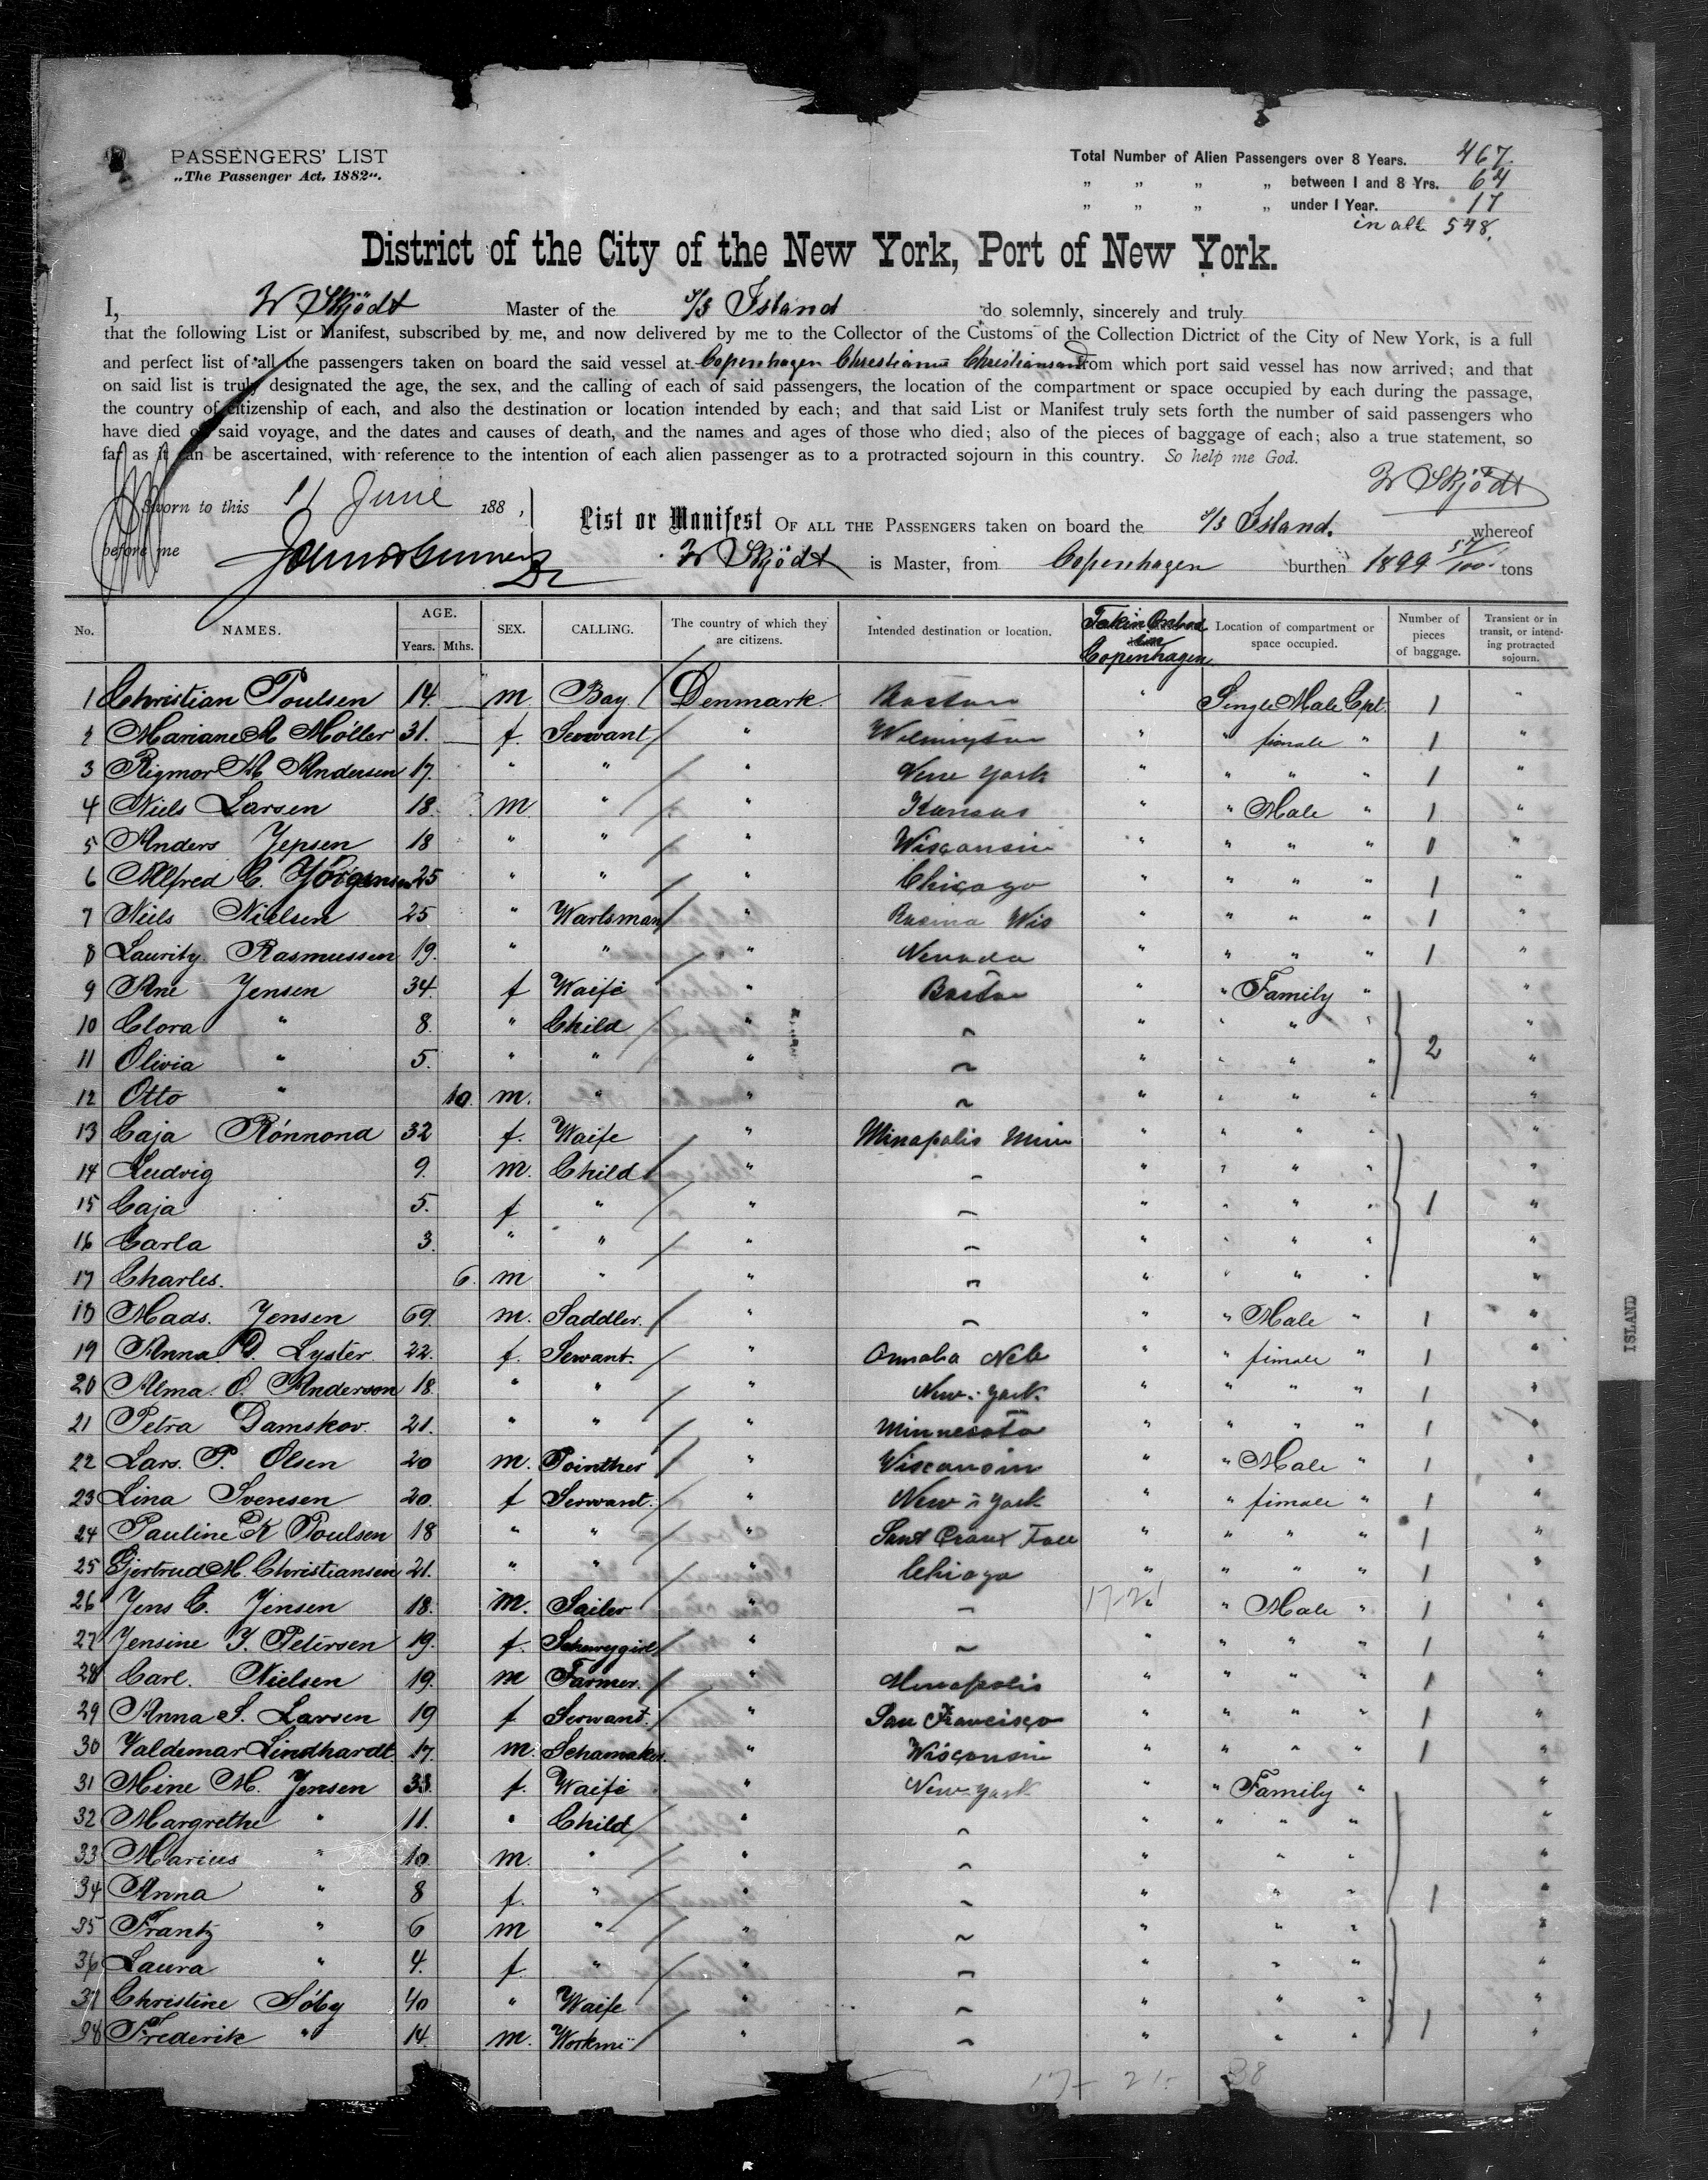 PASSENGERS' LIST
„The Passenger Act, 1882".
Total Number of Alien Passengers over 8 Years. 467.
„ „ „ „ between 1 and 8 Yrs. 64
„ „ „ „ under 1 Year. 17
in all 548.
District of the City of the New York, Port of New York.
I, W Skjödt Master of the S/S Island do solemnly, sincerely and truly
that the following List or Manifest, subscribed by me, and now delivered by me to the Collector of the Customs of the Collection Dictrict of the City of New York, is a full
and perfect list of all the passengers taken on board the said vessel at Copenhagen Christiania Christiansand from which port said vessel has now arrived; and that
on said list is truly designated the age, the sex, and the calling of each of said passengers, the location of the compartment or space occupied by each during the passage,
the country of citizenship of each, and also the destination or location intended by each; and that said List or Manifest truly sets forth the number of said passengers who
have died on said voyage, and the dates and causes of death, and the names and ages of those who died; also of the pieces of baggage of each; also a true statement, so
far as it can be ascertained, with reference to the intention of each alien passenger as to a protracted sojourn in this country. So help me God.
W Skjödt
Sworn to this 11 June 188 ,
before me
List or Manifest OF ALL THE PASSENGERS taken on board the S/S Island. whereof
W Skjödt is Master, from Copenhagen burthen 1899 57/100 tons
No. NAMES. AGE. Years. Mths. SEX. CALLING. The country of which they are citizens. Intended destination or location. Takin Onbord Copenhagen Location of compartment or space occupied. Number of pieces of baggage. Transient or in transit, or intending protracted sojourn.
1 Christian Poulsen 14. m. Boy Denmark. Boston " Single Male Cpt. 1 "
2 Mariane M Möller 31. f. Servant " Wilmington " " fimale " 1 "
3 Rigmor M. Andersen 17. " " " New York " " " " 1 "
4 Niels Larsen 18. m " " Kansas " " Male " 1 "
5 Anders Jepsen 18 " " " Wisconsin " " " " 1 "
6 Alfred C. Jörgensen 25 " " " Chicago " " " " 1 "
7 Niels Nielsen 25 " Warlsman " Racina Wis " " " " 1 "
8 Lauritz Rasmussen 19. " " " Nevada " " " " 1 "
9 Ane Jensen 34. f Waife " Boston " " Family " "
10 Clora " 8. " Child " " " " " " "
11 Olivia " 5. " " " " " " " " 2 "
12 Otto " 10. m. " " " " " " " "
13 Caja Rönnond 32 f. Waife " Minapolis Minn " " " " "
14 Ludvig 9. m. Child " " " " " " "
15 Caja 5. f " " " " " " " 1 "
16 Carla 3. " " " " " " " " "
17 Charles. 6. m " " " " " " " "
18 Mads. Jensen 69. m. Saddler. " " " " Male " 1 "
19 Anna D. Lyster. 22. f. Servant. " Omaha Neb " " fimale " 1 "
20 Alma. O. Anderson 18. " " " New-York. " " " " 1 "
21 Petra Damskov. 21. " " " Minnesota " " " " 1 "
22 Lars. P. Olsen 20 m. Pointher " Wisconsin " " Male " 1 "
23 Lina Svensen 20. f Servant. " New York " " fimale " 1 "
24 Pauline K Poulsen 18 " " " Sant Croux Fall " " " " 1 "
25 Gjertrud M. Christiansen 21. " " " Chiago " " " " 1 "
26 Jens C. Jensen 18. m. Sailer " " 17-2 " " Male " 1 "
27 Jensine J. Petersen 19. f. " " " " " " 1 "
28 Carl. Nielsen 19. m Farmer. " Minapolis " " " " 1 "
29 Anna S. Larsen 19 f Servant. " San Francisco " " " " 1 "
30 Valdemar Lindhardt 17. m. Schamaker " Wisconsin " " " " 1 "
31 Mine M. Jensen 33. f. Waife " New-York " " Family " "
32 Margrethe " 11. " Child " " " " " " "
33 Marius " 10 m. " " " " " " "
34 Anna " 8 f. " " " " " " 1 "
35 Frantz " 6 m " " " " " " "
36 Laura " 4. f. " " " " " " "
37 Christine Söby 40 " Waife " " " " " "
38 Frederik " 14. m. Workmi " " " " " 1 "
17- 21- 38
ISLAND